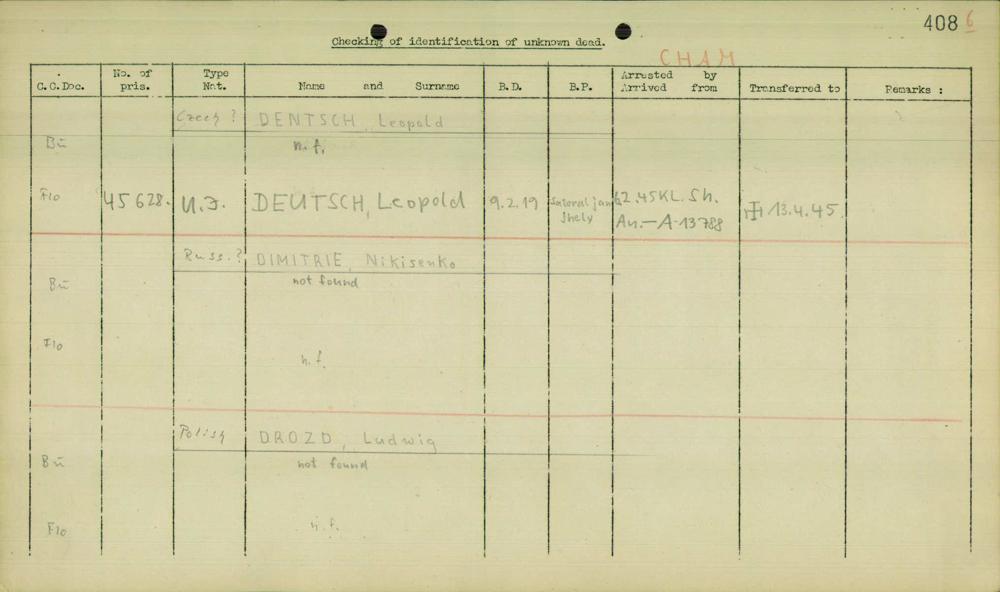 408 6
Checking of identification of unknown dead.
CHAM
C.C.Doc. No. of pris. Type Nat. Name and Surname B.D. B.P. Arrested by Arrived from Transferred to Remarks :
Czech ? DENTSCH, Leopold
Bü n.f.
Flo 45628. U.J. DEUTSCH, Leopold 9.2.19 62.45KL.Sh. 13.4.45.
Jhely An.-A-13788
Russ.? DIMITRIE, Nikisenko
Bü not found
Flo n.f.
Polish DROZD, Ludwig
Bü not found
Flo n.f.